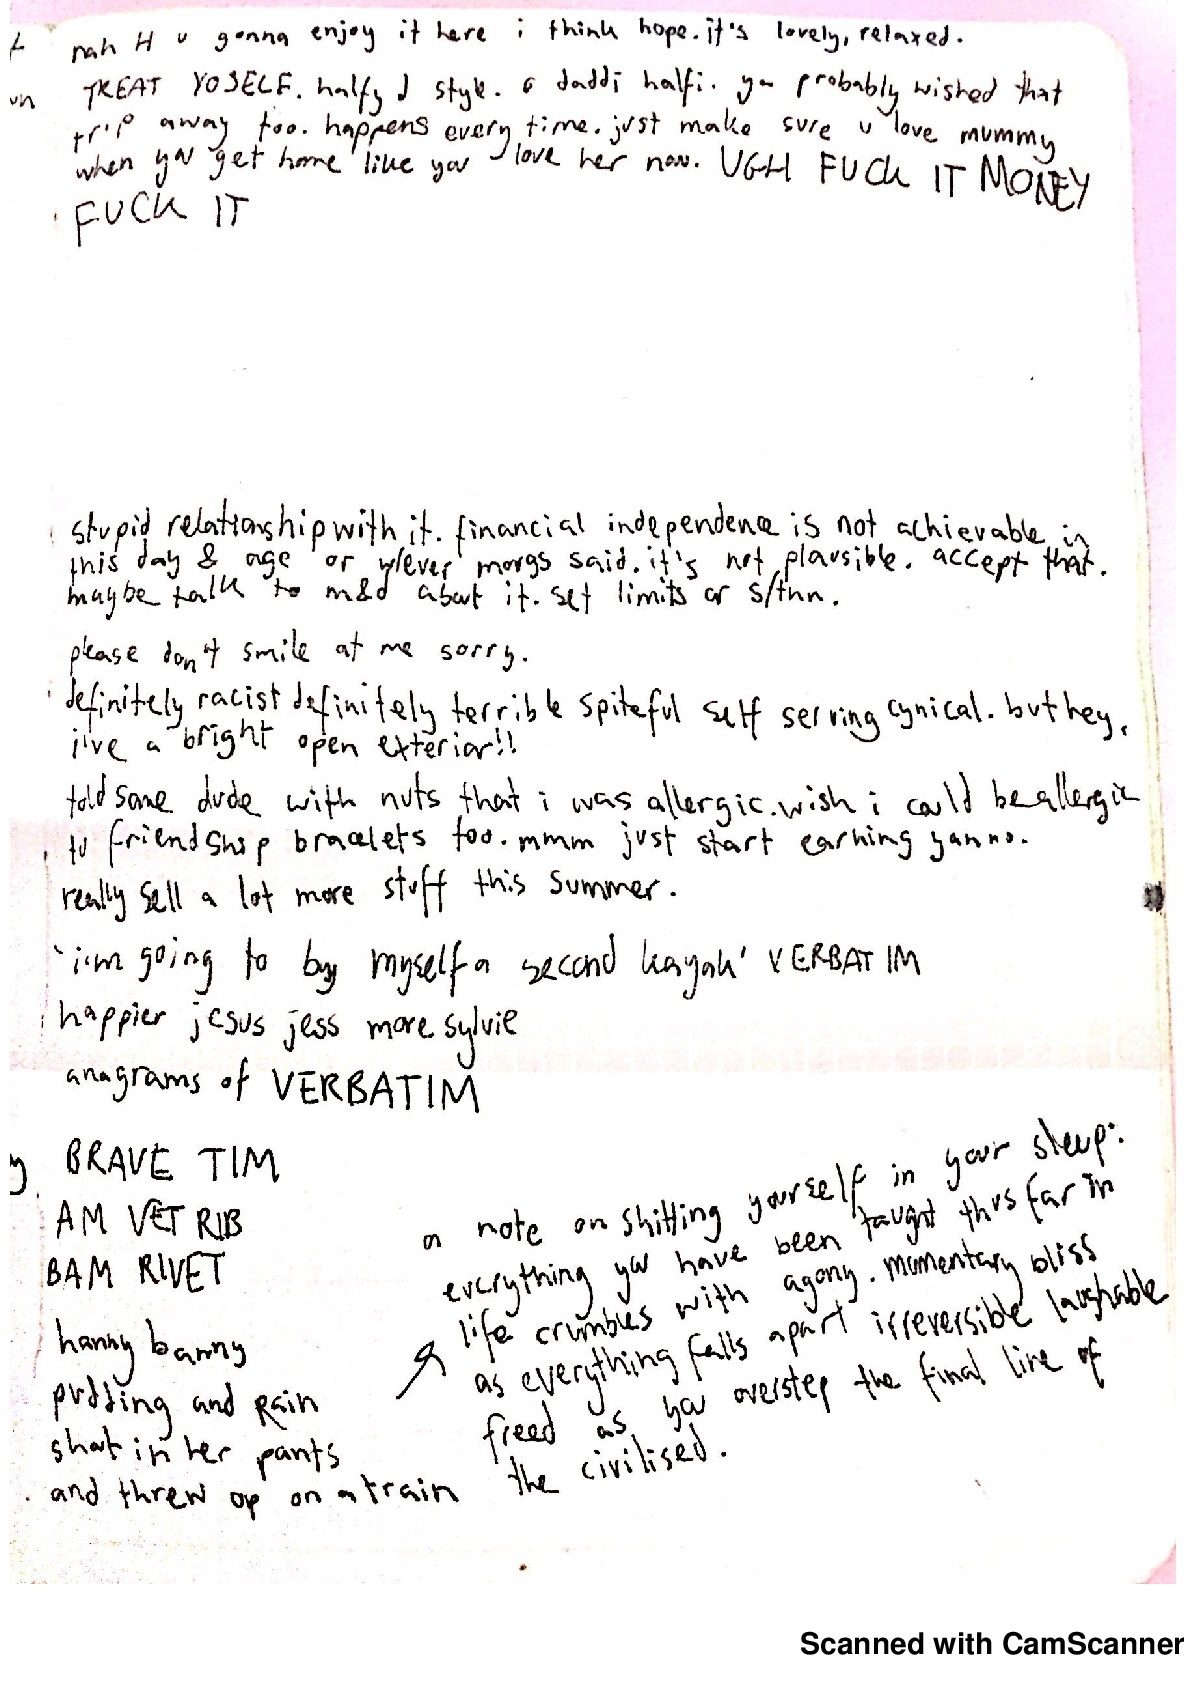 nah H u gonna enjoy it here i think hope. it's lovely, relaxed.
TREAT YOSELF. halfy J style. o daddi halfi. you probably wished that
trip away too. happens every time. just make sure u love mummy
when you get home like you love her now. UGH FUCK IT MONEY
FUCK IT
stupid relationship with it. financial independence is not achievable in
this day & age or w/ever morgs said. it's not plausible. accept that.
maybe talk to m&d about it. set limits or s/thn.
please don't smile at me sorry.
definitely racist definitely terrible spiteful self serving cynical. but hey,
i've a bright open exterior!!
told some dude with nuts that i was allergic. wish i could be allergic
to friendship bracelets too. mmm just start earning yanno.
really sell a lot more stuff this summer.
'i'm going to by myself a second kayak' VERBATIM
happier jesus jess more sylvie
anagrams of VERBATIM
BRAVE TIM
AM VET RIB
BAM RIVET
hanny banny
pudding and rain
shat in her pants
and threw up on a train
a note on shitting yourself in your sleep:
everything you have been taught thus far in
life crumbles with agony. momentary bliss
as everything falls apart irreversible laughable
freed as you overstep the final line of
the civilised.
Scanned with CamScanner